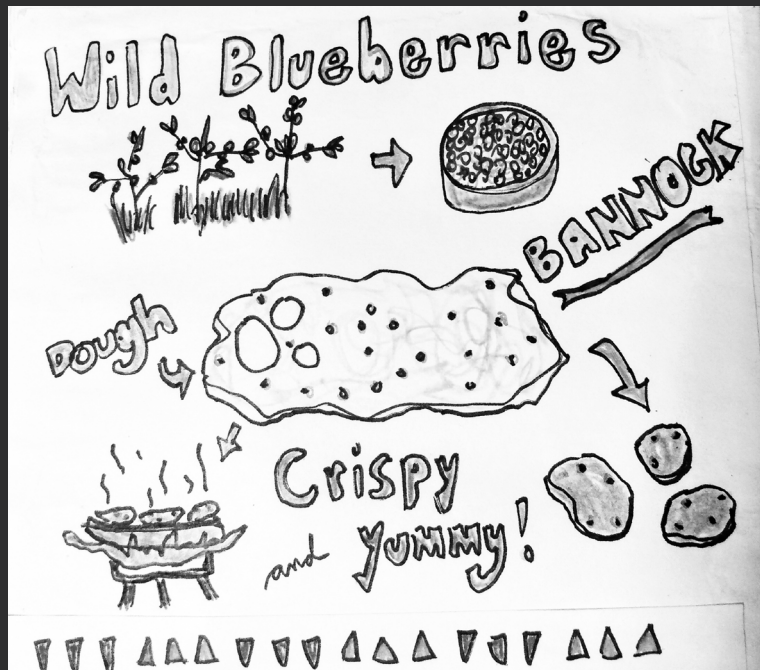 Wild Blueberries
BANNOCK
Dough
Crispy
and yummy!